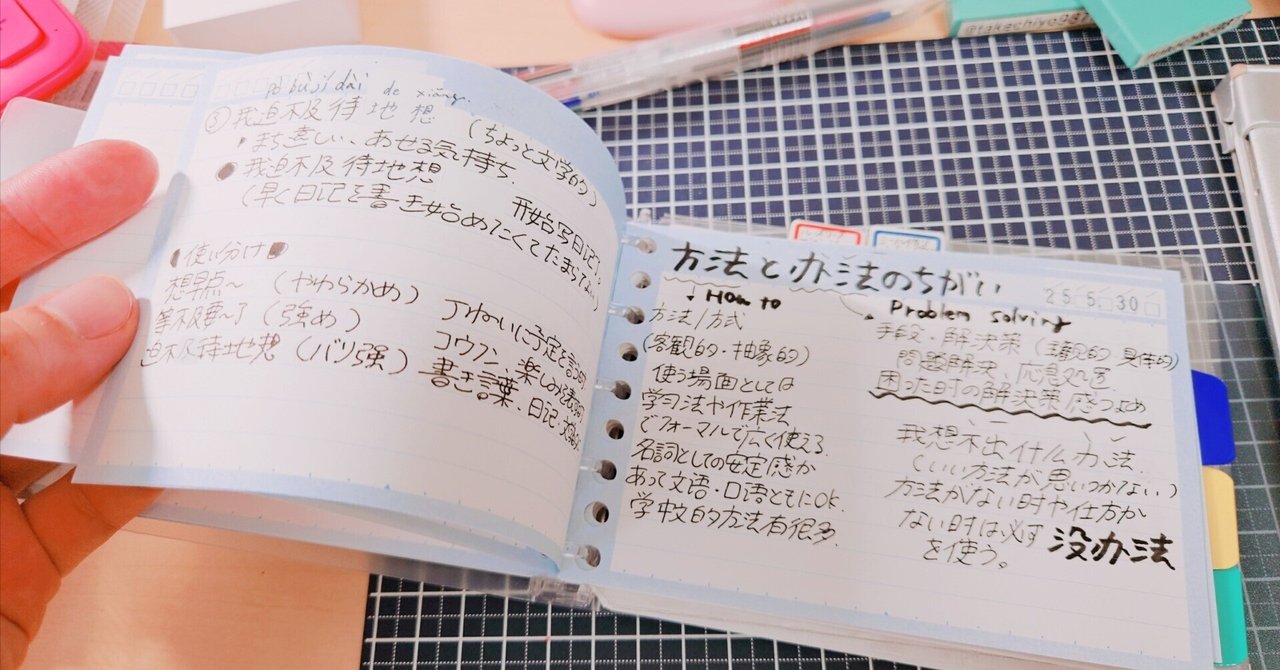 bù jí dài de xiǎng
③我迫不及待地想
(ちょっと文学的)
・まち遠しい、あせる気持ち.
●我迫不及待地想
开始写日记了。
(早く日記を書き始めたくてたまらない)
●使い分け●
想早点~(やわらかめ)
等不及要~了(強め)
迫不及待地想(バリ強)
ていねいに予定を言う時
コウフン、楽しみを表す時
書き言葉、日記・
方法と办法のちがい
25 5 30
How to
方法/方式
(客観的・抽象的)
使う場面としては
学习法や作業法
でフォーマルで広く使える
名詞としての安定感が
あって文語・口語ともにOK.
学中文的方法有很多.
Problem solving
手段・解決策(主観的 具体的)
問題解決、応急処置
困った時の解決策感つよめ
我想不出什么办法.
(いい方法が思いつかない)
方法がない時や仕方が
ない時は必ず没办法
を使う。
@takachiyo937